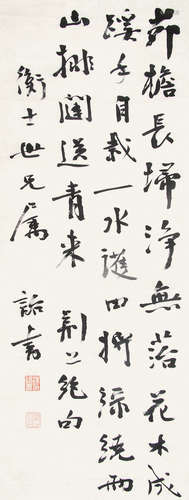 茆檐長埽淨無菭花木成
蹊手自栽一水護田將綠繞兩
山排闥送青來 荆公絕句
衡士世兄屬 詒書